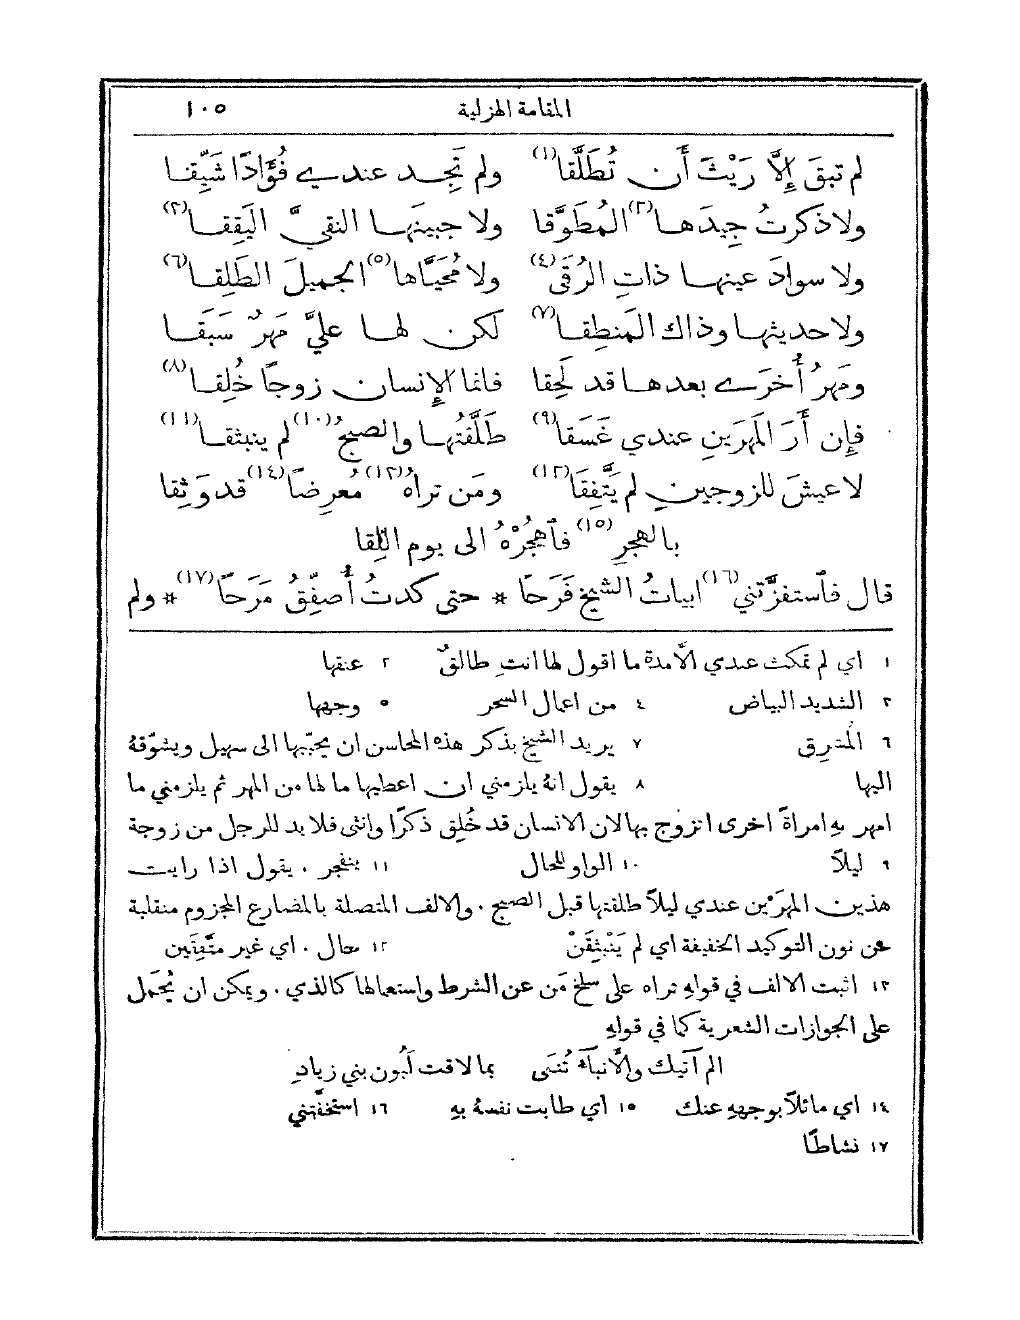 المقامة الهزلية ١٠٥
لم تبقَ إِلَّا رَيْثَ أَن تُطَلَّقا(١) ولم تَجِد عندي فُؤَادًا شَيِّقا
ولا ذكرتُ جِيدَها(٢) المُطَوَّقا ولا جبينَها النقيَّ اليَقِقا(٣)
ولا سوادَ عينها ذاتِ الرُقَى(٤) ولا مُحَيَّاها(٥) الجميلَ الطَلِقا(٦)
ولا حديثها وذاك المَنطِقا(٧) لكن لها عليَّ مَهرٌ سَبَقا
ومَهرُ أُخرَى بعدها قد لَحِقا فانما الإِنسان زوجًا خُلِقا(٨)
فإِن أَرَ المَهرَينِ عندي غَسَقا(٩) طَلَّقتُها والصبحُ(١٠) لم ينبثقا(١١)
لا عيشَ للزوجينِ لم يَتَّفِقَا(١٢) ومَن تراهُ(١٣) مُعرِضًا(١٤) قد وَثِقا
بالهجرِ(١٥) فاَهجُرْهُ الى يوم اللِقا
قال فاَستفزَّتني(١٦) ابياتُ الشيخ فَرَحًا * حتى كدتُ أُصفِّقُ مَرَحًا(١٧) * ولم
١ اي لم تمكث عندي الَّا مدة ما اقول لها انتِ طالقٌ ٢ عنقها
٣ الشديد البياض ٤ من اعمال السحر ٥ وجهها
٦ المُشرِق ٧ يريد الشيخ بذكر هذه المحاسن ان يحبّبها الى سهيل ويشوّقهُ
اليها ٨ يقول انهُ يلزمني ان اعطيها ما لها من المهر ثم يلزمني ما
امهر بهِ امراةً اخرى اتزوج بها لان الانسان قد خُلِق ذكرًا وانثى فلا بد للرجل من زوجة
٩ ليلًا ١٠ الواو للحال ١١ ينفجر . يقول اذا رايت
هذين المهرَين عندي ليلًا طلقتها قبل الصبح . والالف المتصلة بالمضارع المجزوم منقلبة
عن نون التوكيد الخفيفة اي لم يَنْبثِقَنْ ١٢ حال . اي غير متَّفِقَين
١٣ اثبت الالف في قولهِ تراه على سلخ مَن عن الشرط واستعمالها كالذي . ويمكن ان يُحمَل
على الجوازات الشعرية كما في قولهِ
الم آتيك والَأنباَۤء تُنمَى بما لاقت لَبُون بني زيادِ
١٤ اي مائلًا بوجههِ عنك ١٥ اي طابت نفسهُ بهِ ١٦ استخفَّتني
١٧ نشاطًا